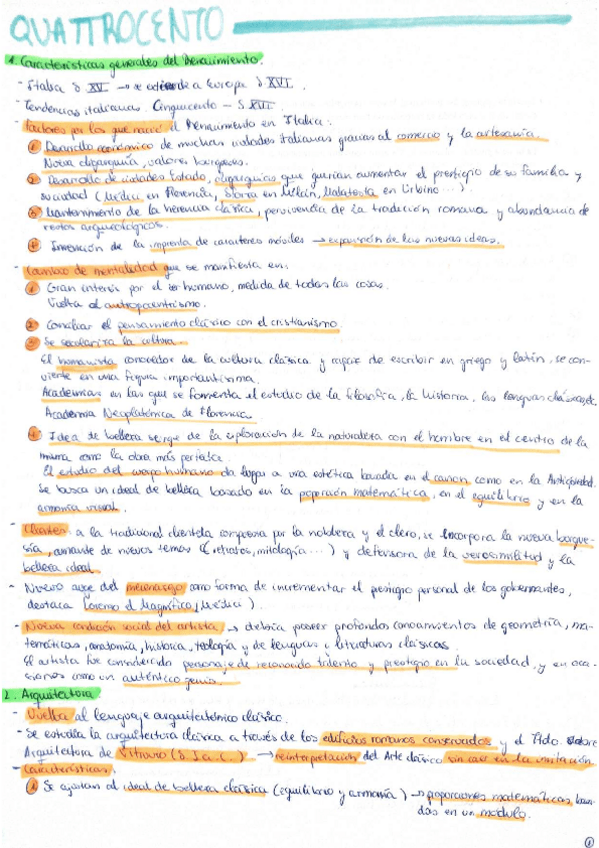 QUATTROCENTO
1. Características generales del Renacimiento.
- Italia s XV → se extiende a Europa s XVI.
- Tendencias italianas. Cinquecento - S XVI.
- Factores por los que nació el Renacimiento en Italia:
① Desarrollo económico de muchas ciudades italianas gracias al comercio y la artesanía.
Nova oligarquía, valores burgueses.
② Desarrollo de ciudades Estado, oligarquías que querían aumentar el prestigio de su familia y
su ciudad (Médici en Florencia, Sforza en Milán, Malatesta en Urbino ...).
③ Mantenimiento de la herencia clásica, pervivencia de la tradición romana y abundancia de
restos arqueológicos.
④ Invención de la imprenta de caracteres móviles → expansión de las nuevas ideas.
- Cambio de mentalidad que se manifiesta en:
① Gran interés por el ser humano, medida de todas las cosas.
Vuelta al antropocentrismo.
② Conciliar el pensamiento clásico con el cristianismo
③ Se seculariza la cultura.
El humanista conocedor de la cultura clásica y capaz de escribir en griego y latín, se con-
vierte en una figura importantísima.
Academias en las que se fomenta el estudio de la filosofía, la historia, las lenguas clásicas, etc.
Academia Neoplatónica de Florencia.
④ Idea de belleza surge de la exploración de la naturaleza con el hombre en el centro de la
misma como la obra más perfecta.
El estudio del cuerpo humano da lugar a una estética basada en el canon como en la Antigüedad.
Se busca un ideal de belleza basado en la proporción matemática, en el equilibrio y en la
armonía visual.
- Clientes: a la tradicional clientela compuesta por la nobleza y el clero, se incorpora la nueva burgue-
sía, amante de nuevos temas (retratos, mitología ...) y defensora de la verosimilitud y la
belleza ideal
- Nuevo auge del mecenazgo como forma de incrementar el prestigio personal de los gobernantes,
destaca Lorenzo el Magnífico (Médici).
- Nueva condición social del artista → debía poseer profundos conocimientos de geometría, ma-
temáticas, anatomía, historia, teología y de lenguas y literaturas clásicas.
El artista fue considerado personaje de reconocido talento y prestigio en la sociedad, y en oca-
siones como un auténtico genio.
2. Arquitectura
- Vuelta al lenguaje arquitectónico clásico.
- Se estudia la arquitectura clásica a través de los edificios romanos conservados y el Ttdo. sobre
Arquitectura de Vitruvio (s I a. C.) → reinterpretación del Arte clásico sin caer en la imitación
- Características:
① Se ajustan al ideal de belleza clásica (equilibrio y armonía) → proporciones matemáticas basa-
das en un módulo.
①